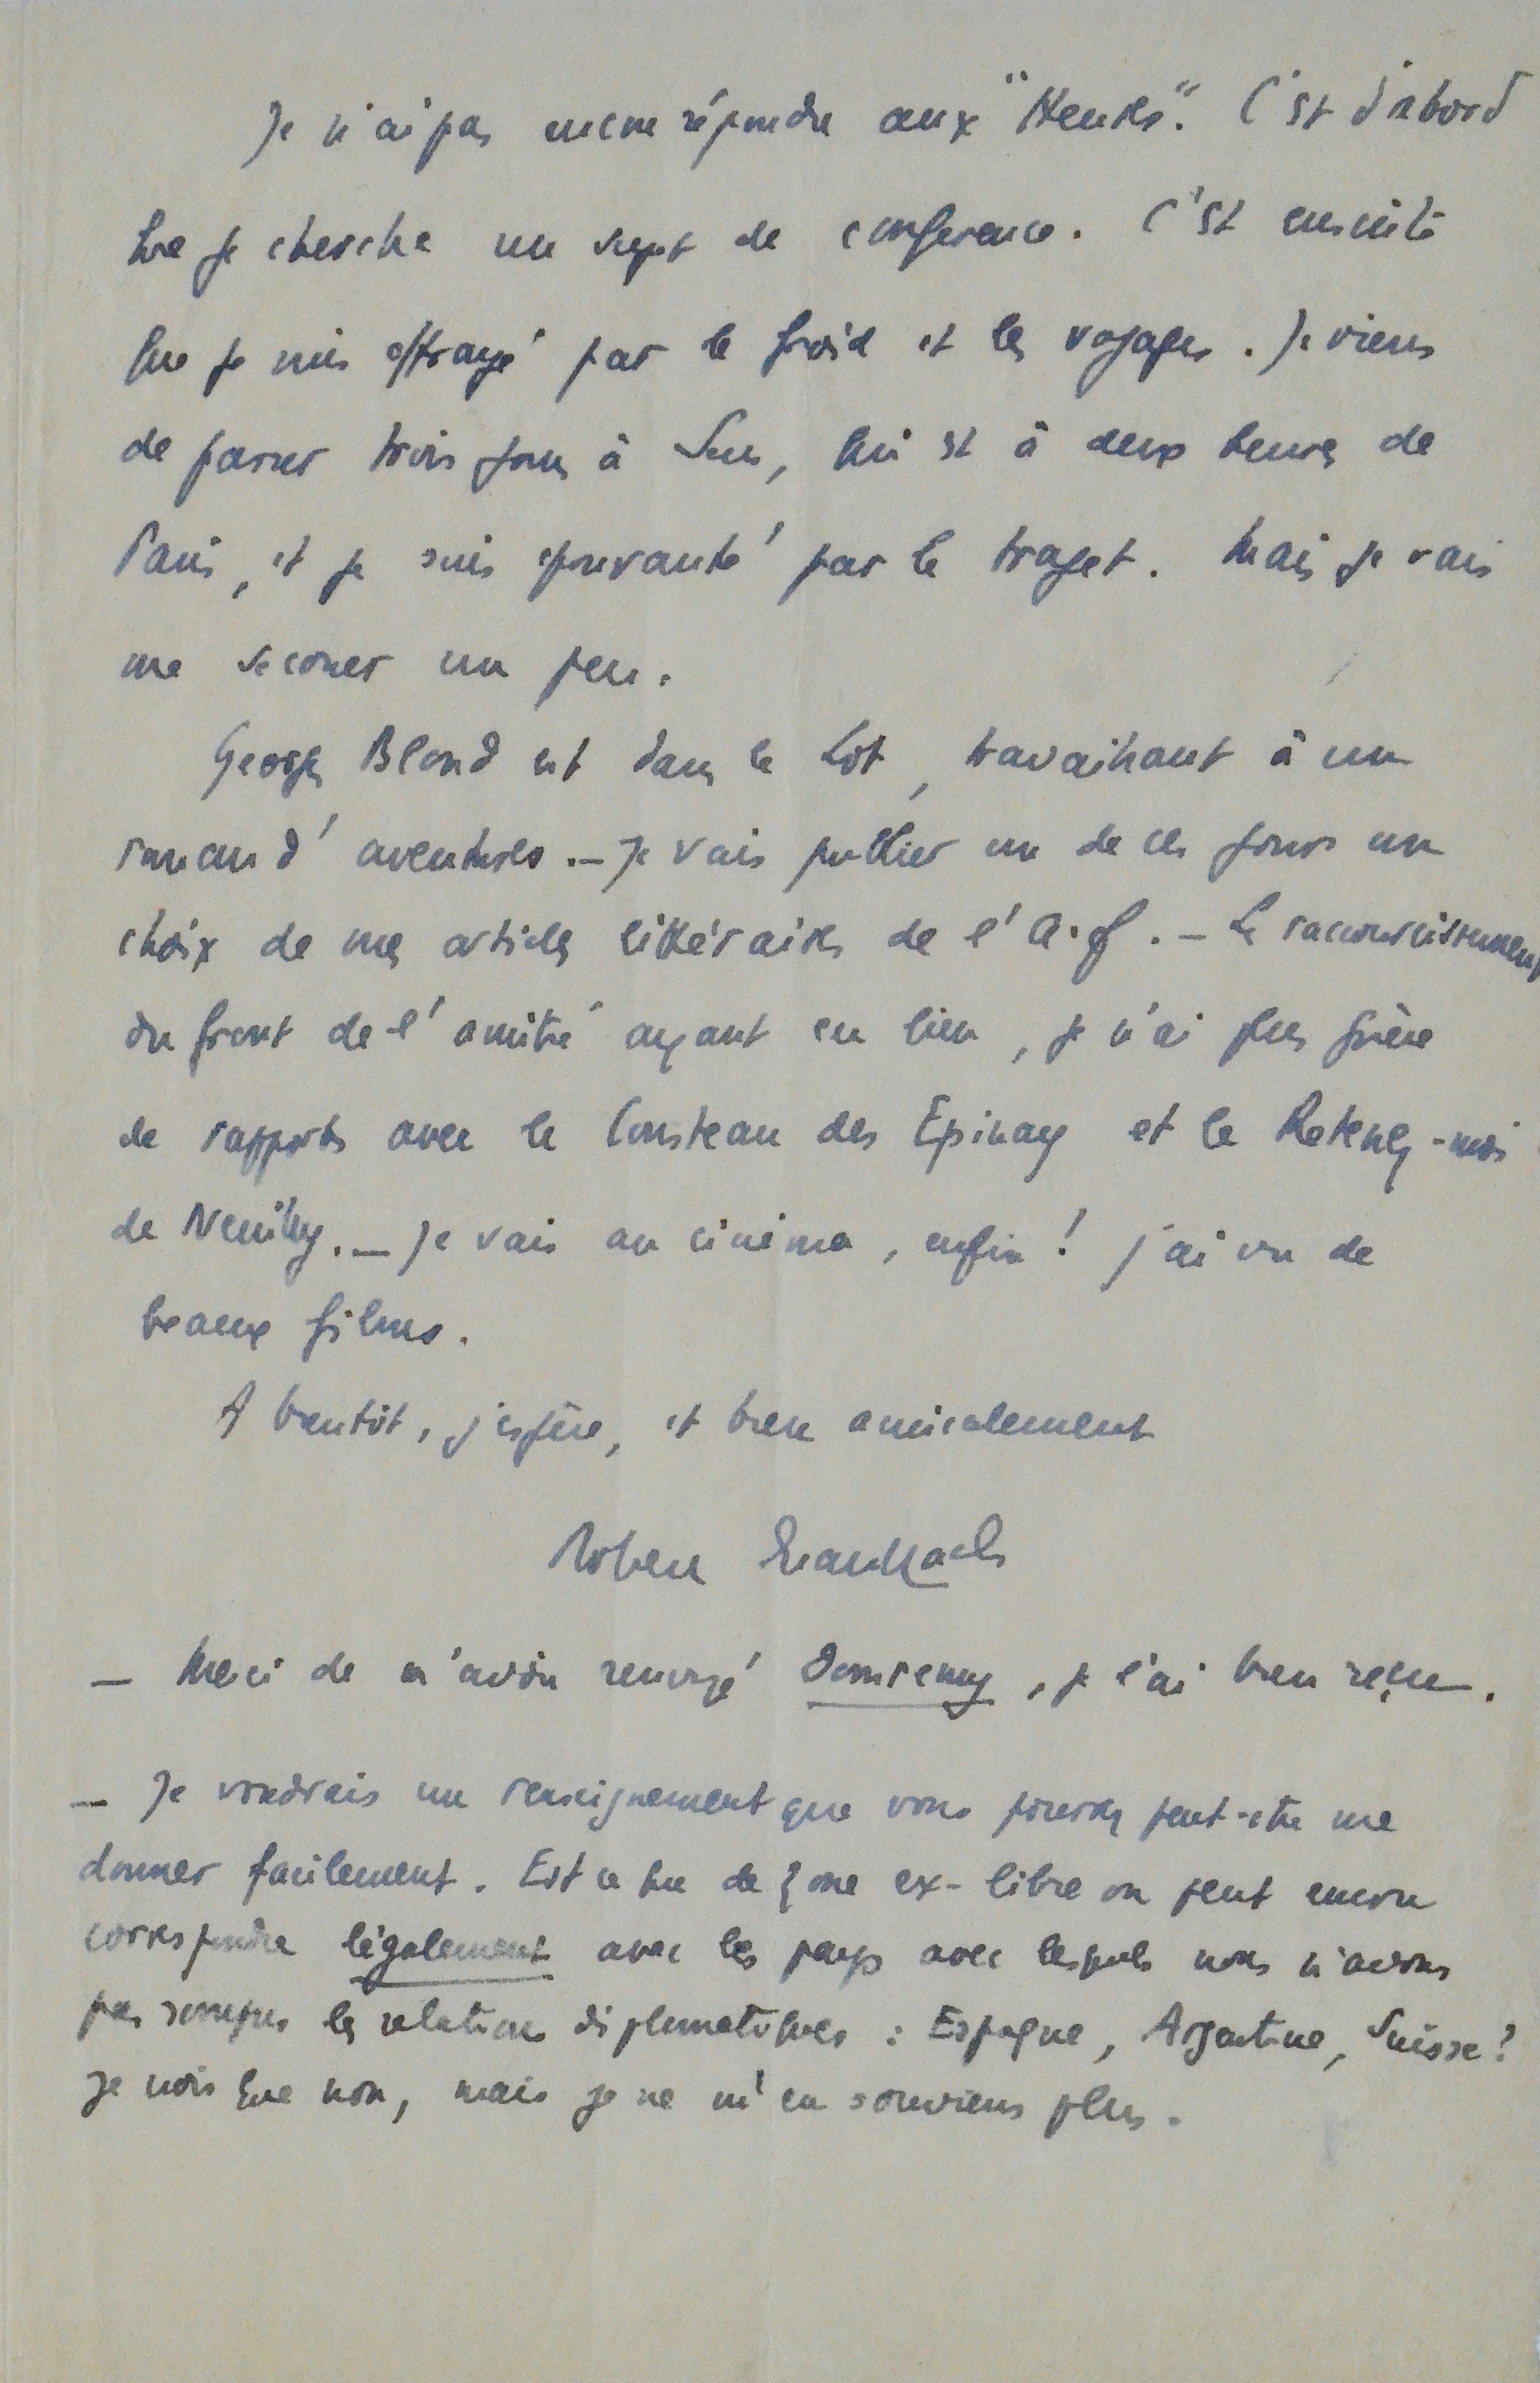 Je n'ai pas encore répondu aux "Heures". C'est d'abord
que je cherche un sujet de conférence. C'est ensuite
que je suis effrayé par le froid et les voyages. Je viens
de passer trois jours à Sens, qui est à deux heures de
Paris, et je suis épouvanté par le trajet. Mais je vais
me secouer un peu.
Georges Blond est dans le Lot, travaillant à un
roman d'aventures. — Je vais publier un de ces jours un
choix de mes articles littéraires de l'A.f. — Le raccourcissement
du front de l'amitié ayant eu lieu, je n'ai plus guère
de rapports avec le Cousteau des Epinay et le
de Neuilly. — Je vais au cinéma, enfin ! j'ai vu de
beaux films.
A bientôt, j'espère, et bien amicalement
Robert Brasillach
— Merci de m'avoir renvoyé Domremy, je l'ai bien reçu.
— Je voudrais un renseignement que vous pourrez peut-être me
donner facilement. Est ce que de zone ex-libre on peut encore
correspondre légalement avec les pays avec lesquels nous n'avons
pas rompus les relations diplomatiques : Espagne, Argentine, Suisse ?
Je crois que non, mais je ne m'en souviens plus.